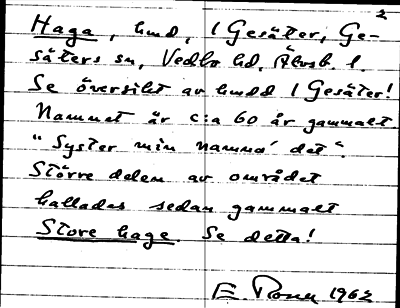 2
Haga, hmd, 1 Gesäter, Ge-
säters sn, Vedbo hd, Älvsb. l.
Se översikt av hmdd 1 Gesäter!
Namnet är c:a 60 år gammalt.
"Syster min namna' det".
Större delen av området
kallades sedan gammalt
Store hage. Se detta!
E. 1962